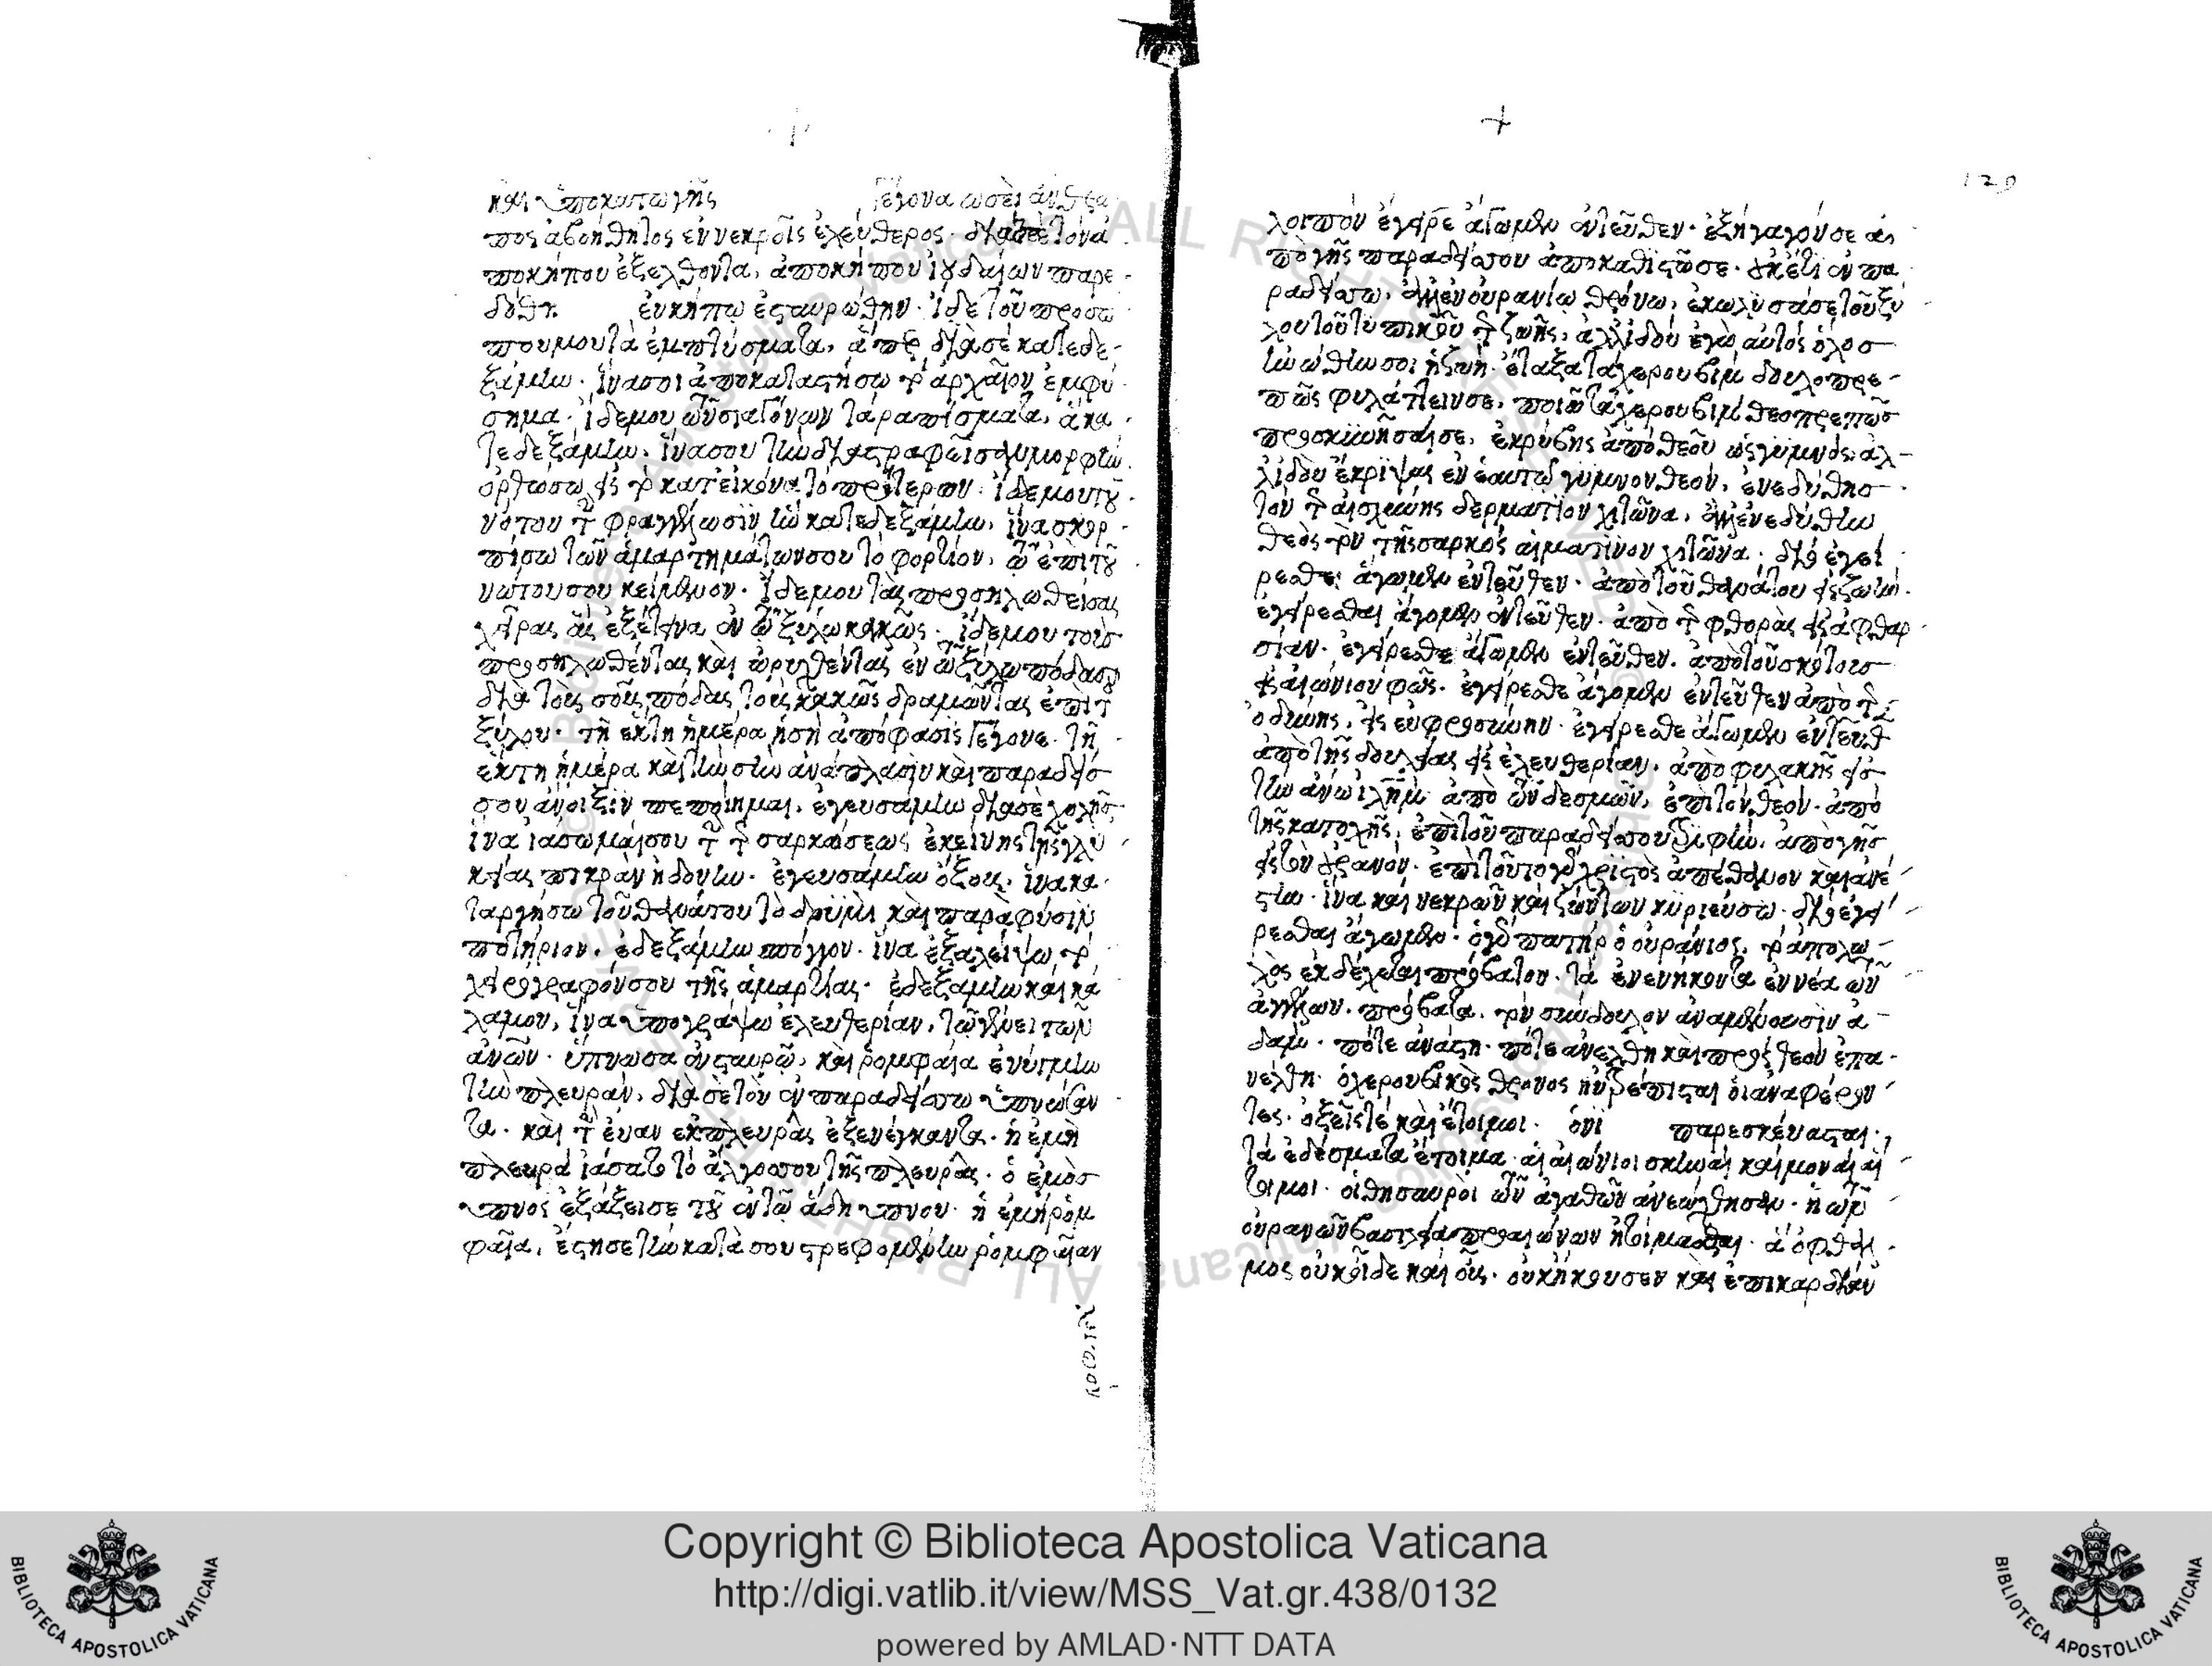 καὶ ὑποκάτω γῆς Γέγονα ὡσεὶ ἄνθρω
πος ἀβοήθητος ἐν νεκροῖς ἐλεύθερος· διὰ σὲ τὸν ἀ
πο κήπου ἐξελθόντα, ἀπο κήπου ἰουδαίων παρε
δόθη ἐν κήπω ἐσταυρώθην· ἴδε τοῦ προσώ
που μου τὰ ἐμπτύσματα, ἅπερ διὰ σὲ κατεδε
ξάμην· ἵνα σοι ἀποκαταστήσω τὸ ἀρχαῖον ἐμφύ
σημα· ἴδε μου τῶν σιαγόνων τὰ ραπίσματα, ἃ κα
τεδεξάμην· ἵνα σου τὴν διαστραφεῖσαν μορφὴν
ὀρθώσω εἰς τὸ κατ' εἰκόνα τὸ πρότερον· ἴδε μου τοῦ
νότου τὴν φραγγέλωσιν ἣν κατεδεξάμην, ἵνα σκορ
πίσω τῶν ἁμαρτημάτων σου τὸ φορτίον, τὸ ἐπὶ τοῦ
νώτου σου κείμενον· ἴδε μου τὰς προσηλωθείσας
χεῖρας ἃς ἐξέτεινα ἐν τῶ ξύλω καλῶς· ἴδε μου τοὺς
προσηλωθέντας καὶ ὀρυχθέντας ἐν τῶ ξύλω πόδας
διὰ τοὺς σοὺς πόδας τοὺς κακῶς δραμόντας ἐπὶ τὸ
ξύλον· τῆ ἕκτη ἡμέρα ἡ σὴ ἀπόφασις γέγονε· τῆ
ἕκτη ἡμέρα καὶ τὴν σὴν ἀνάπλασιν καὶ παραδείσ
σου ἄνοιξιν πεποίημαι· ἐγευσάμην διὰ σὲ χολῆς
ἵνα ἰάσωμαί σου τὴν τῆς σαρκώσεως ἐκείνης τῆς γλυ
κείας πικρὰν ἡδονήν· ἐγευσάμην ὄξους, ἵνα κα
ταργήσω τοῦ θανάτου τὸ δριμὺ, καὶ παρὰ φύσιν
ποτήριον· ἐδεξάμην σπόγγον· ἵνα ἐξαλείψω τὸ
χειρόγραφόν σου τῆς ἁμαρτίας· ἐδεξάμην καὶ κά
λαμον, ἵνα ὑπογράψω ἐλευθερίαν, τῶ γένει τῶν
ἀνῶν· ὕπνωσα ἐν σταυρῶ, καὶ ρομφαία ἐνύγημην
τὴν πλευράν, διὰ σὲ τὸν ἐν παραδείσω ὑπνώσαν
τα· καὶ τὴν εὔαν ἐκ πλευρᾶς ἐξενέγκαντα· ἡ ἐμὴ
πλευρὰ ἰάσατο τὸ ἄλγος σου τῆς πλευρᾶς· ὁ ἐμὸς
ὕπνος ἐξάξει σε τοῦ ἐν τῶ ἅδη ὕπνου· ἡ ἐμὴ ρομ
φαῖα, ἔστησε τὴν κατὰ σου στρεφομένην ρομφαίαν
λοιπὸν
129
λοιπὸν ἔγειρε ἄγωμεν ἐντεῦθεν· ἐξήγαγόν σε ἀ
πὸ γῆς παραδείσου ἀποκαθιστῶ σε· οὐκέτι ἐν πα
ραδείσω, ἀλλ' ἐν οὐρανίω θρόνω, ἐκώλυσά σε τοῦ ξύ
λου τοῦ τυπικοῦ τῆς ζωῆς, ἀλλ' ἰδοὺ ἐγὼ αὐτὸς ὅλος
ἡνώθην σοι ἡ ζωή· ἔταξα τὰ χερουβὶμ δουλοπρε
πῶς φυλάττειν σε, ποιῶ τὰ χερουβὶμ θεοπρεπῶς
προσκυνῆσαί σε, ἐκρύβης ἀπὸ θεοῦ ὡς γυμνὸς· ἀλ
λ' ἰδοὺ ἔκρυψας ἐν ἑαυτῶ γυμνὸν θεόν, ἐνεδύθης
τὸν τῆς αἰσχύνης δερμάτινον χιτῶνα, ἀλλ' ἐνεδύθην
θεὸς τὸν τῆς σαρκός αἱμάτινον χιτῶνα· διὸ ἐγεί
ρεσθε ἄγωμεν ἐντεῦθεν· ἀπὸ τοῦ θανάτου εἰς ζωὴν·
ἐγείρεσθαι ἄγομεν ἐντεῦθεν· ἀπὸ τῆς φθορὰς εἰς ἀφθαρ
σίαν· ἐγείρεσθε ἄγωμεν ἐντεῦθεν· ἀπὸ τοῦ σκότους
εἰς αἰώνιον φῶς· ἐγείρεσθε ἄγομεν ἐντεῦθεν ἀπὸ τῆς
ὀδύνης, εἰς εὐφροσύνην· ἐγείρεσθε ἄγωμεν ἐντεῦθ
ἀπὸ τῆς δουλείας εἰς ἐλευθερίαν, ἀπὸ φυλακῆς εἰς
τὴν ἄνω ἱλῆμ ἀπὸ τῶν δεσμῶν, ἐπὶ τὸν θεὸν· ἀπὸ
τῆς κατοχῆς, ἐπὶ τοῦ παραδείσου τρυφὴν, ἀπὸ γῆς
εἰς τὸν οὐρανόν· ἐπὶ τοῦτο γὰρ χριστὸς ἀπέθανον καὶ ἀνέ
στην· ἵνα καὶ νεκρῶν καὶ ζώντων κυριεύσω· διὸ ἐγεί
ρεσθαι ἄγωμεν· ὁ γὰρ πατὴρ ὁ οὐράνιος, τὸ ἀπολω
λὸς ἐκδέχεται πρόβατον· τὰ ἐνενήκοντα ἐννέα τῶν
ἀγγέλων πρόβατα, τὸν σύνδουλον ἀναμένουσιν ἀ
δάμ· πότε ἀνάστη· πότε ἀνέλθη καὶ πρὸς θεὸν ἐπα
νέλθη· ὁ χερουβικὸς θρόνος ηὐτρέπισται οἱ ἀναφέρον
τες· ὀξεῖς τὲ καὶ ἕτοιμοι· παρεσκεύασται·
τὰ ἐδέσματα ἕτοιμα· αἱ αἰώνιοι σκηναὶ καὶ μοναὶ αἱ
τιμοι· οἱ θησαυροὶ τῶν ἀγαθῶν ἀνεώχθησαν· ἡ τῶν
οὐρανῶν βασιλεία πρὸ αἰώνων ἡτοίμασται· ἃ ὀφθαλ
μὸς οὐκ οἶδε καὶ οὖς· οὐκ ἤκουσεν καὶ ἐπὶ καρδίαν
Copyright © Biblioteca Apostolica Vaticana
http://digi.vatlib.it/view/MSS_Vat.gr.438/0132
powered by AMLAD·NTT DATA
BIBLIOTECA APOSTOLICA VATICANA
BIBLIOTECA APOSTOLICA VATICANA